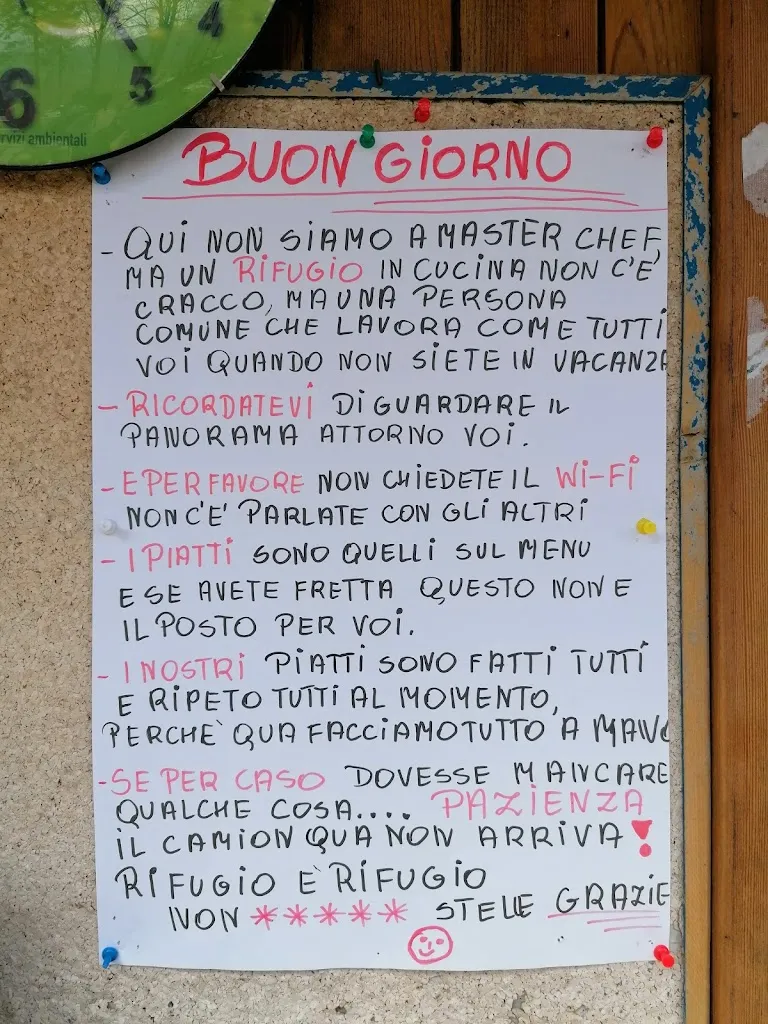 4
5
6
rvizi ambientali
BUON GIORNO
- QUI NON SIAMO A MASTER CHEF,
MA UN RIFUGIO IN CUCINA NON C'E'
CRACCO, MA UNA PERSONA
COMUNE CHE LAVORA COME TUTTI
VOI QUANDO NON SIETE IN VACANZA
- RICORDATEVI DI GUARDARE IL
PANORAMA ATTORNO VOI.
- E PER FAVORE NON CHIEDETE IL WI-FI
NON C'E' PARLATE CON GLI ALTRI
- I PIATTI SONO QUELLI SUL MENU
E SE AVETE FRETTA QUESTO NON E
IL POSTO PER VOI.
- I NOSTRI PIATTI SONO FATTI TUTTI
E RIPETO TUTTI AL MOMENTO,
PERCHE` QUA FACCIAMO TUTTO A MANO
- SE PER CASO DOVESSE MANCARE
QUALCHE COSA.... PAZIENZA
IL CAMION QUA NON ARRIVA!
RIFUGIO E` RIFUGIO
NON ***** STELLE GRAZIE